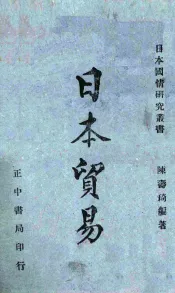 日本國情研究叢書
陳壽琦編著
日本貿易
正中書局印行